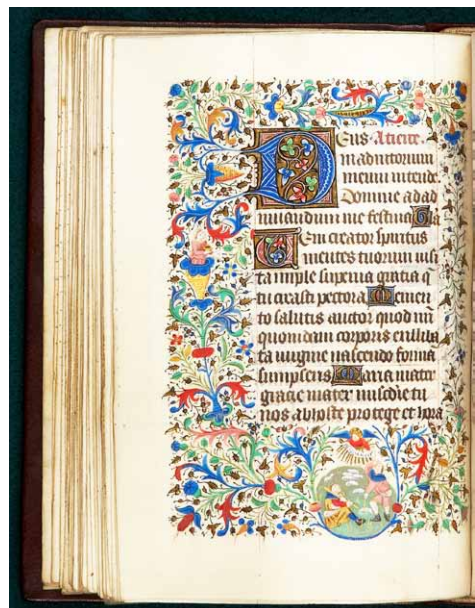 Deus. A tierce.
in adiutorium
meum intende
Domine ad ad
iuuandum me festina Gla
Veni creator spiritus
mentes tuorum visi
ta imple superna gratia q
tu creasti pectora Memen
to salutis auctor quod nri
quondam corporis ex illiba
ta virgine nascendo forma
sumpseris Maria mater
gracie mater miscdie tu
nos ab hoste protege et hora